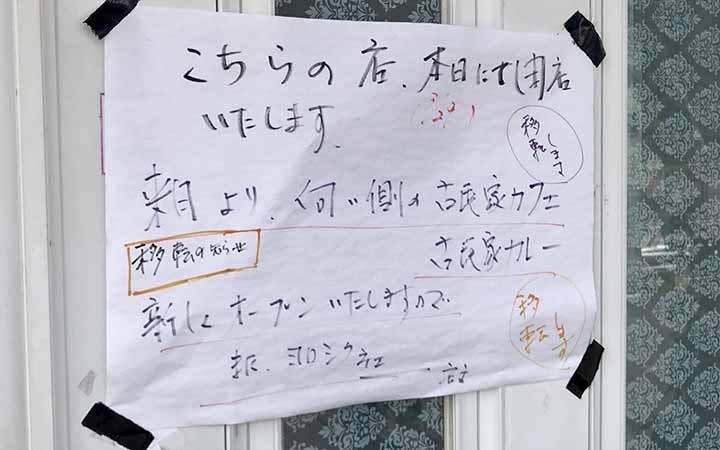 こちらの店、本日にて閉店
いたします。
移転します
来月より、向い側の古民家カフェ
移転の知らせ
古民家カレー
新しくオープンいたしますので
移転します
ヨロシク